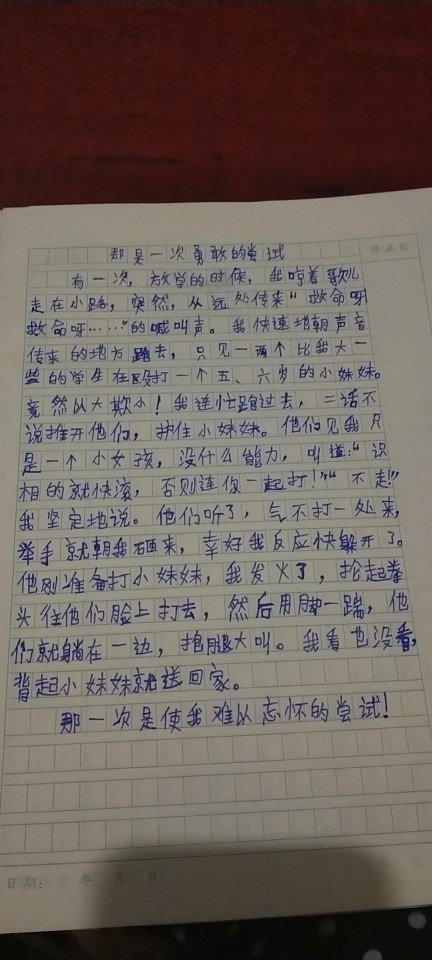 那是一次勇敢的尝试
有一次，放学的时候，我哼着歌儿
走在小路，突然，从远处传来“救命呀
救命呀……”的喊叫声。我快速地朝声音
传来的地方跑去，只见一两个比我大一
些的学生在殴打一个五、六岁的小妹妹。
竟然以大欺小！我连忙跑过去，二话不
说推开他们，护住小妹妹。他们见我只
是一个小女孩，没什么能力，叫道：“识
相的就快滚，否则连你一起打！”“不走！”
我坚定地说。他们听了，气不打一处来，
举手就朝我砸来，幸好我反应快躲开了。
他刚准备打小妹妹，我发火了，抡起拳
头往他们脸上打去，然后用脚一踹，他
们就躺在一边，抱腿大叫。我看也没看，
背起小妹妹就送回家。
那一次是使我难以忘怀的尝试！
日期： 年 月 日